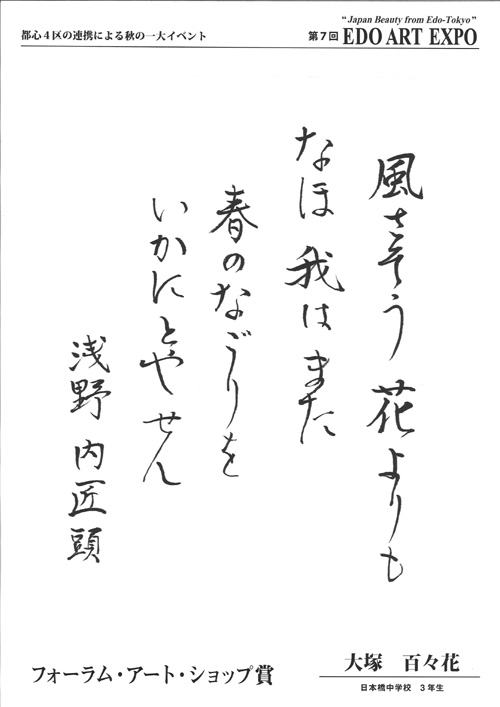 都心4区の連携による秋の一大イベント
"Japan Beauty from Edo-Tokyo"
第7回 EDO ART EXPO
風さそう 花よりも
なほ 我はまた
春のなごりを
いかにとやせん
浅野 内匠頭
フォーラム・アート・ショップ賞
大塚 百々花
日本橋中学校 3年生